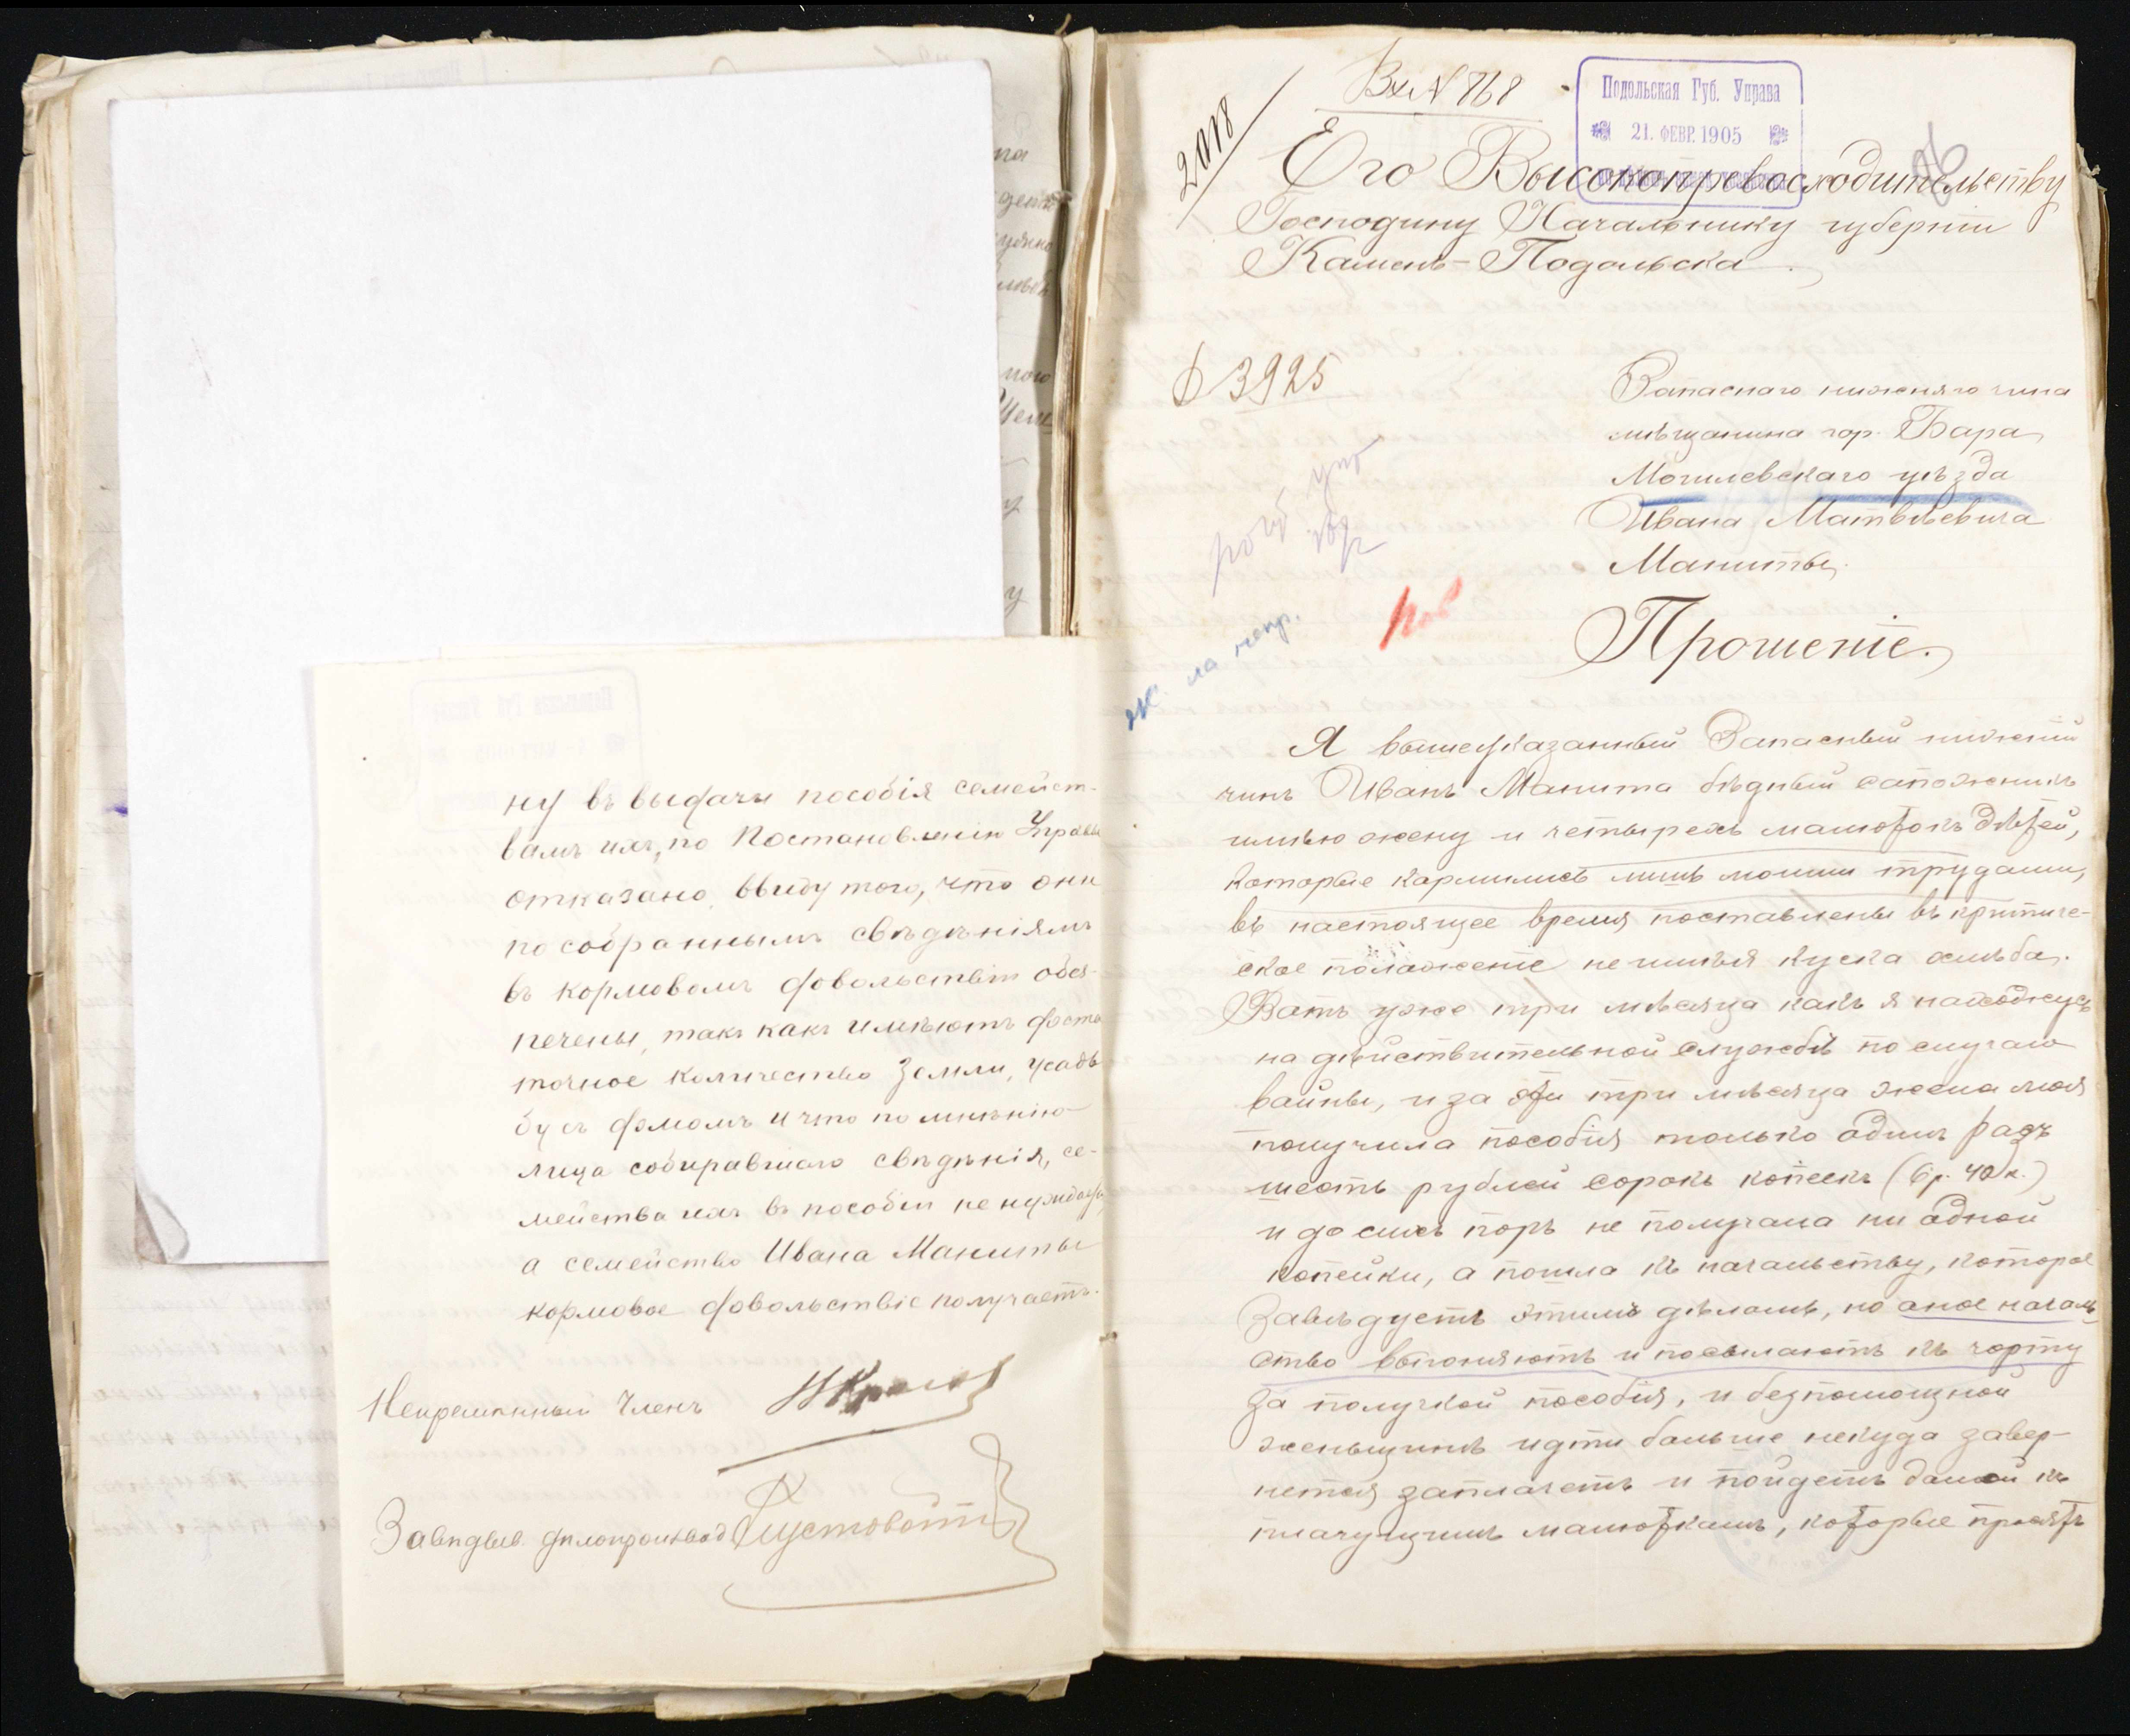 ну въ выдачи пособія семейст-
вамъ ихъ, по Постановленію Управы
отказано, ввиду того, что они
по собраннымъ свѣдѣніямъ
въ кормовомъ довольствіи обез-
печены, такъ какъ имѣютъ доста
точное количество земли, усадь
бу съ домомъ и что по мнѣнію
лица собиравшаго свѣдѣнія, се-
мейства ихъ въ пособіи не нуждаются,
а семейство Ивана Маниты
кормовое довольствіе получаетъ.
Непремѣнный Членъ
Завѣдыв. дѣлопроизвод Пустовойт
2018
Вх N 868
Подольская Губ. Управа
21. ФЕВР. 1905
Его Высокопревосходительству
Господину Начальнику губерніи
Камень-Подольска.
3925
Запаснаго нижняго чина
мѣщанина гор. Бара
Могилевскаго уѣзда
Ивана Матвѣевича
Маниты.
Прошеніе.
Я вышеуказанный Запасный нижній
чинъ Иванъ Манита бѣдный сапожникъ
имѣю жену и четырехъ малютокъ дѣтей,
которые кармились лишь моими трудами,
въ настоящее время поставлены въ критиче-
ское полаженіе не имѣя куска хлѣба.
Вотъ уже три мѣсяца какъ я нахожусь
на дѣйствительной службѣ по случаю
вайны, и за эти три мѣсяца жена моя
получила пособія только одинъ разъ
шесть рублей сорокъ копѣекъ (6 р. 40 к.)
и до сихъ поръ не получала ни одной
копейки, а пошла къ начальству, которое
Завѣдуетъ этимъ дѣломъ, но оное началь
ство выгоняютъ и посылаютъ къ чорту
за получкой пособія, и безпомощной
женьщинѣ идти больше некуда завер-
нется заплачетъ и пойдетъ домой къ
плачущимъ малюткамъ, которые просятъ